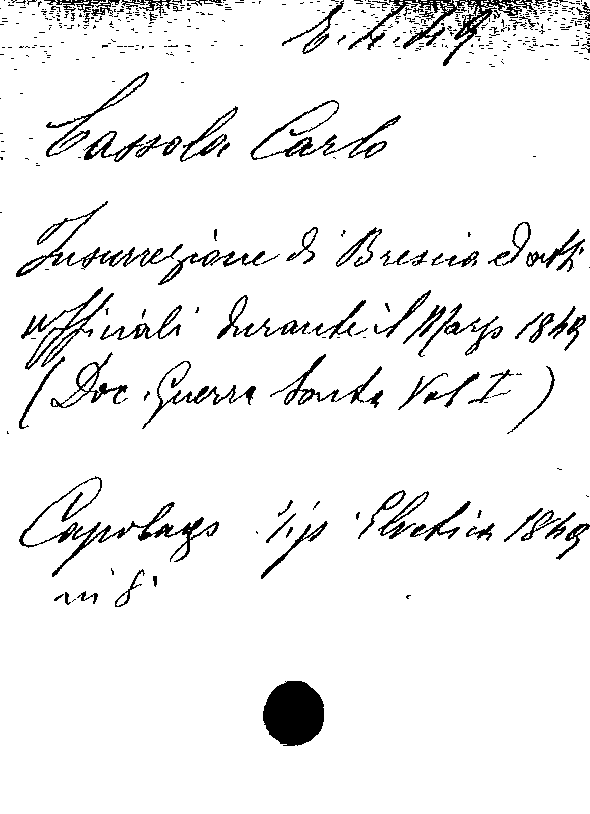 E. 4. 4. 9
Cassola Carlo
Insurrezione di Brescia ed atti
ufficiali durante il Marzo 1849
(Doc. Guerra Santa Vol I)
Capolago Tip Elvetica 1849
in 8°